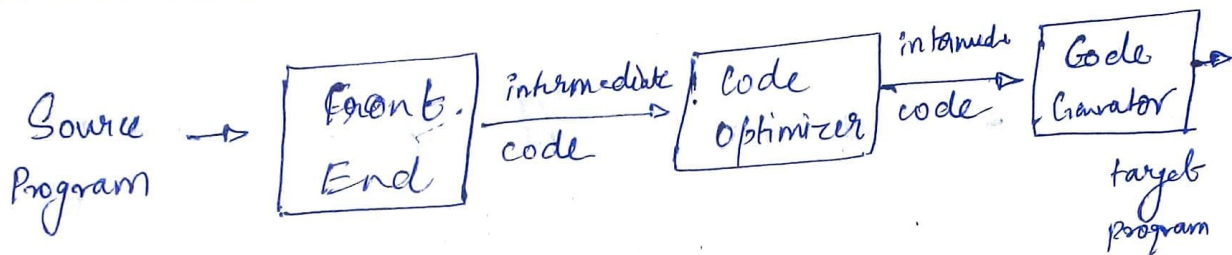 Source
Program
Front
End
intermediate
code
Code
Optimizer
intermede
code
Code
Genrator
target
program